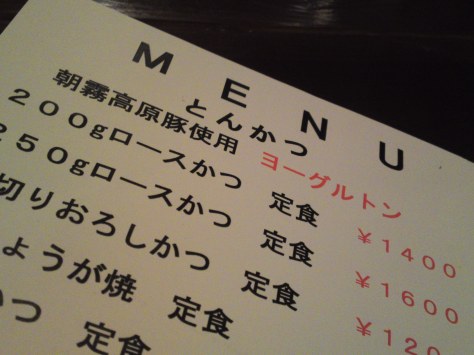 MENU
とんかつ
朝霧高原豚使用 ヨーグルトン
200gロースかつ 定食 ¥1400
250gロースかつ 定食 ¥1600
切りおろしかつ 定食 ¥120
ょうが焼 定食
かつ 定食